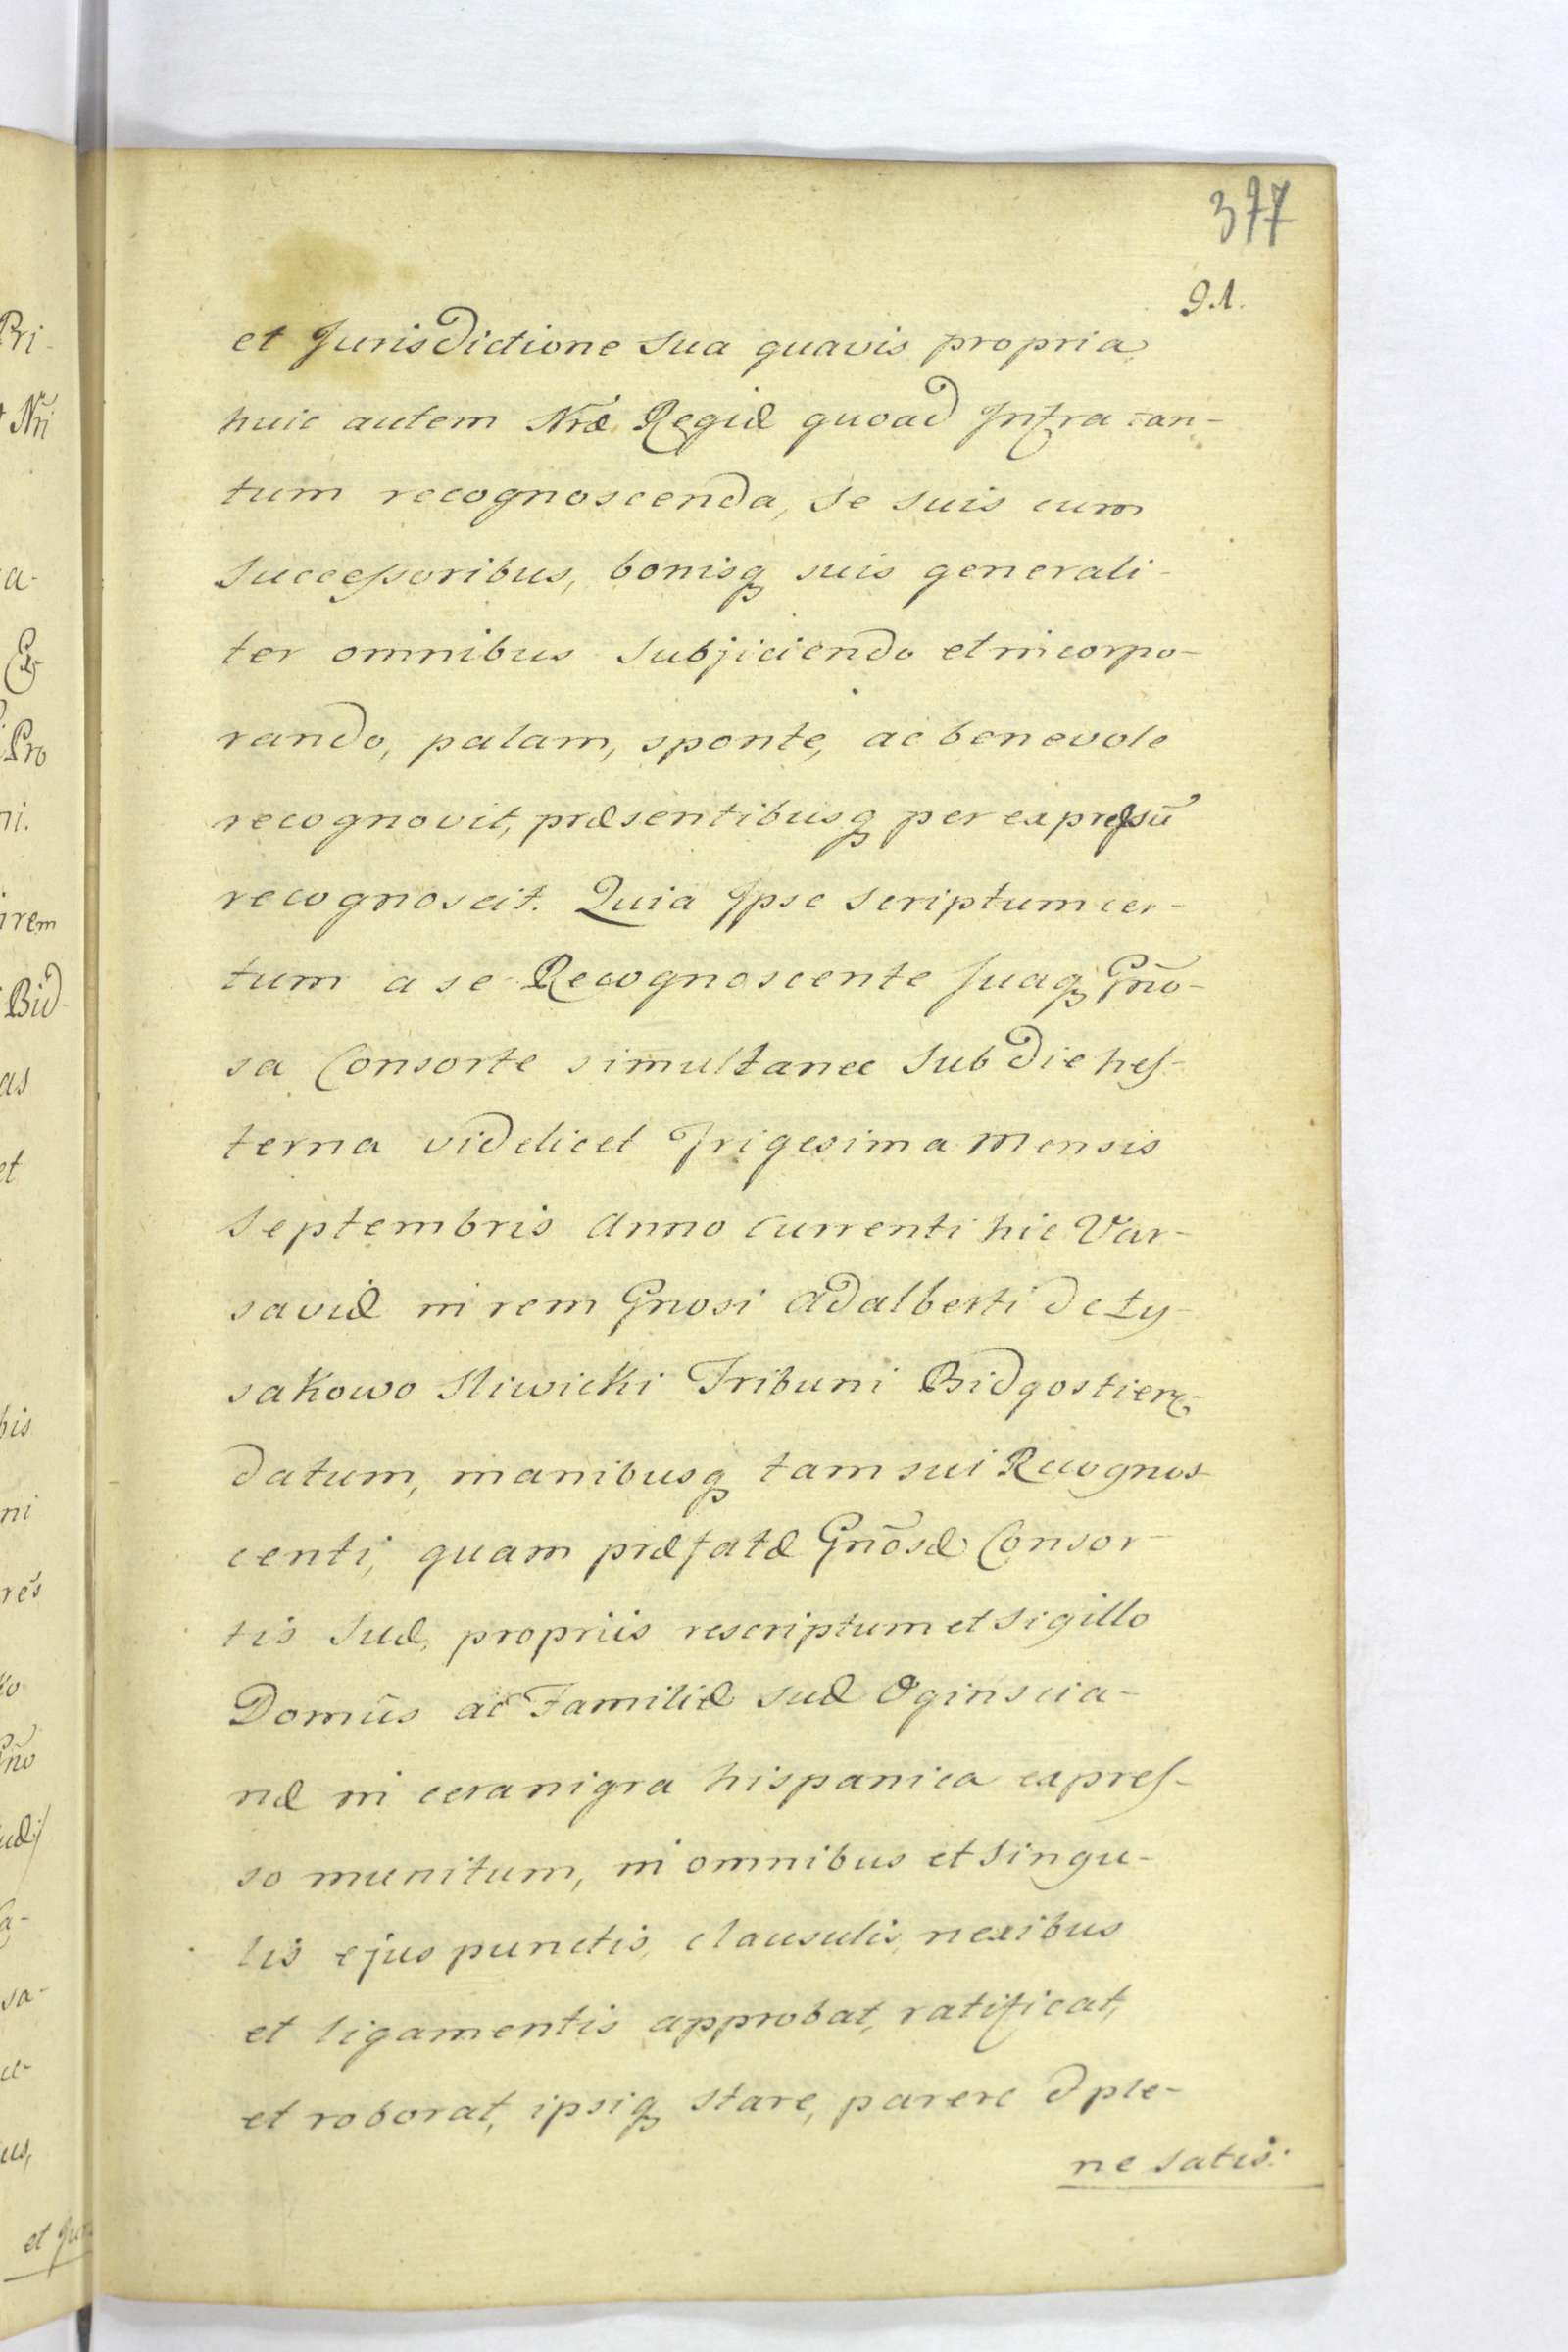 377
91.
et Jurisdictione sua quavis propria
huic autem Nræ Regiæ quoad Infra tan-
tum recognoscenda, se suis cum
successoribus, bonisq suis generali-
ter omnibus subjiciendo et incorpo-
rando, palam, sponte, ac benevole
recognovit, præsentibusq per expressū
recognoscit. Quia Ipse scriptum cer-
tum a se Recognoscente suaq Gño-
sa Consorte simultanee sub die hes-
terna videlicet Trigesima Mensis
Septembris Anno currenti hic Var-
saviæ in rem Gnosi Adalberti de Ły-
sakowo Sliwicki Tribuni Bidgostien
datum, manibusq tam sui Recognos-
centi, quam præfatæ Gñosæ Consor-
tis suæ, propriis rescriptum et sigillo
Domūs ac Familiæ suæ Oginscia-
næ in cera nigra hispanica expres-
so munitum, in omnibus et singu-
lis ejus punctis, clausulis, nexibus
et ligamentis approbat, ratificat,
et roborat, ipsiq stare, parere & ple-
ne satis.
Pri-
Nri
a-
Ex
Pro
ni.
irem
Bid-
as
et
bis
ni
res
Gño
sa-
us,
et Ju